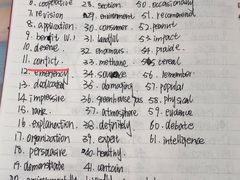 6. cooperative 28. section 50. occasionally
7. revision 29. environment 51. recommend
8. application 30. consumer 52. impact
9. benefit W.1 31. landfill 53.
10. deserve 32. enormous 54. provide
11. conflict 33. methane 55. cereal
12. emergency 34. source 56. remember
13. dedicated 35. damaging 57. popular
14. impressive 36. greenhouse gas 58. physical
15. rank 37. atmosphere 59. evidence
16. explanation 38. definitely 60. debate
17. organization 39. expert 61. intelligence
18. persuasive 40. healthy
19. demonstrate 41. contain